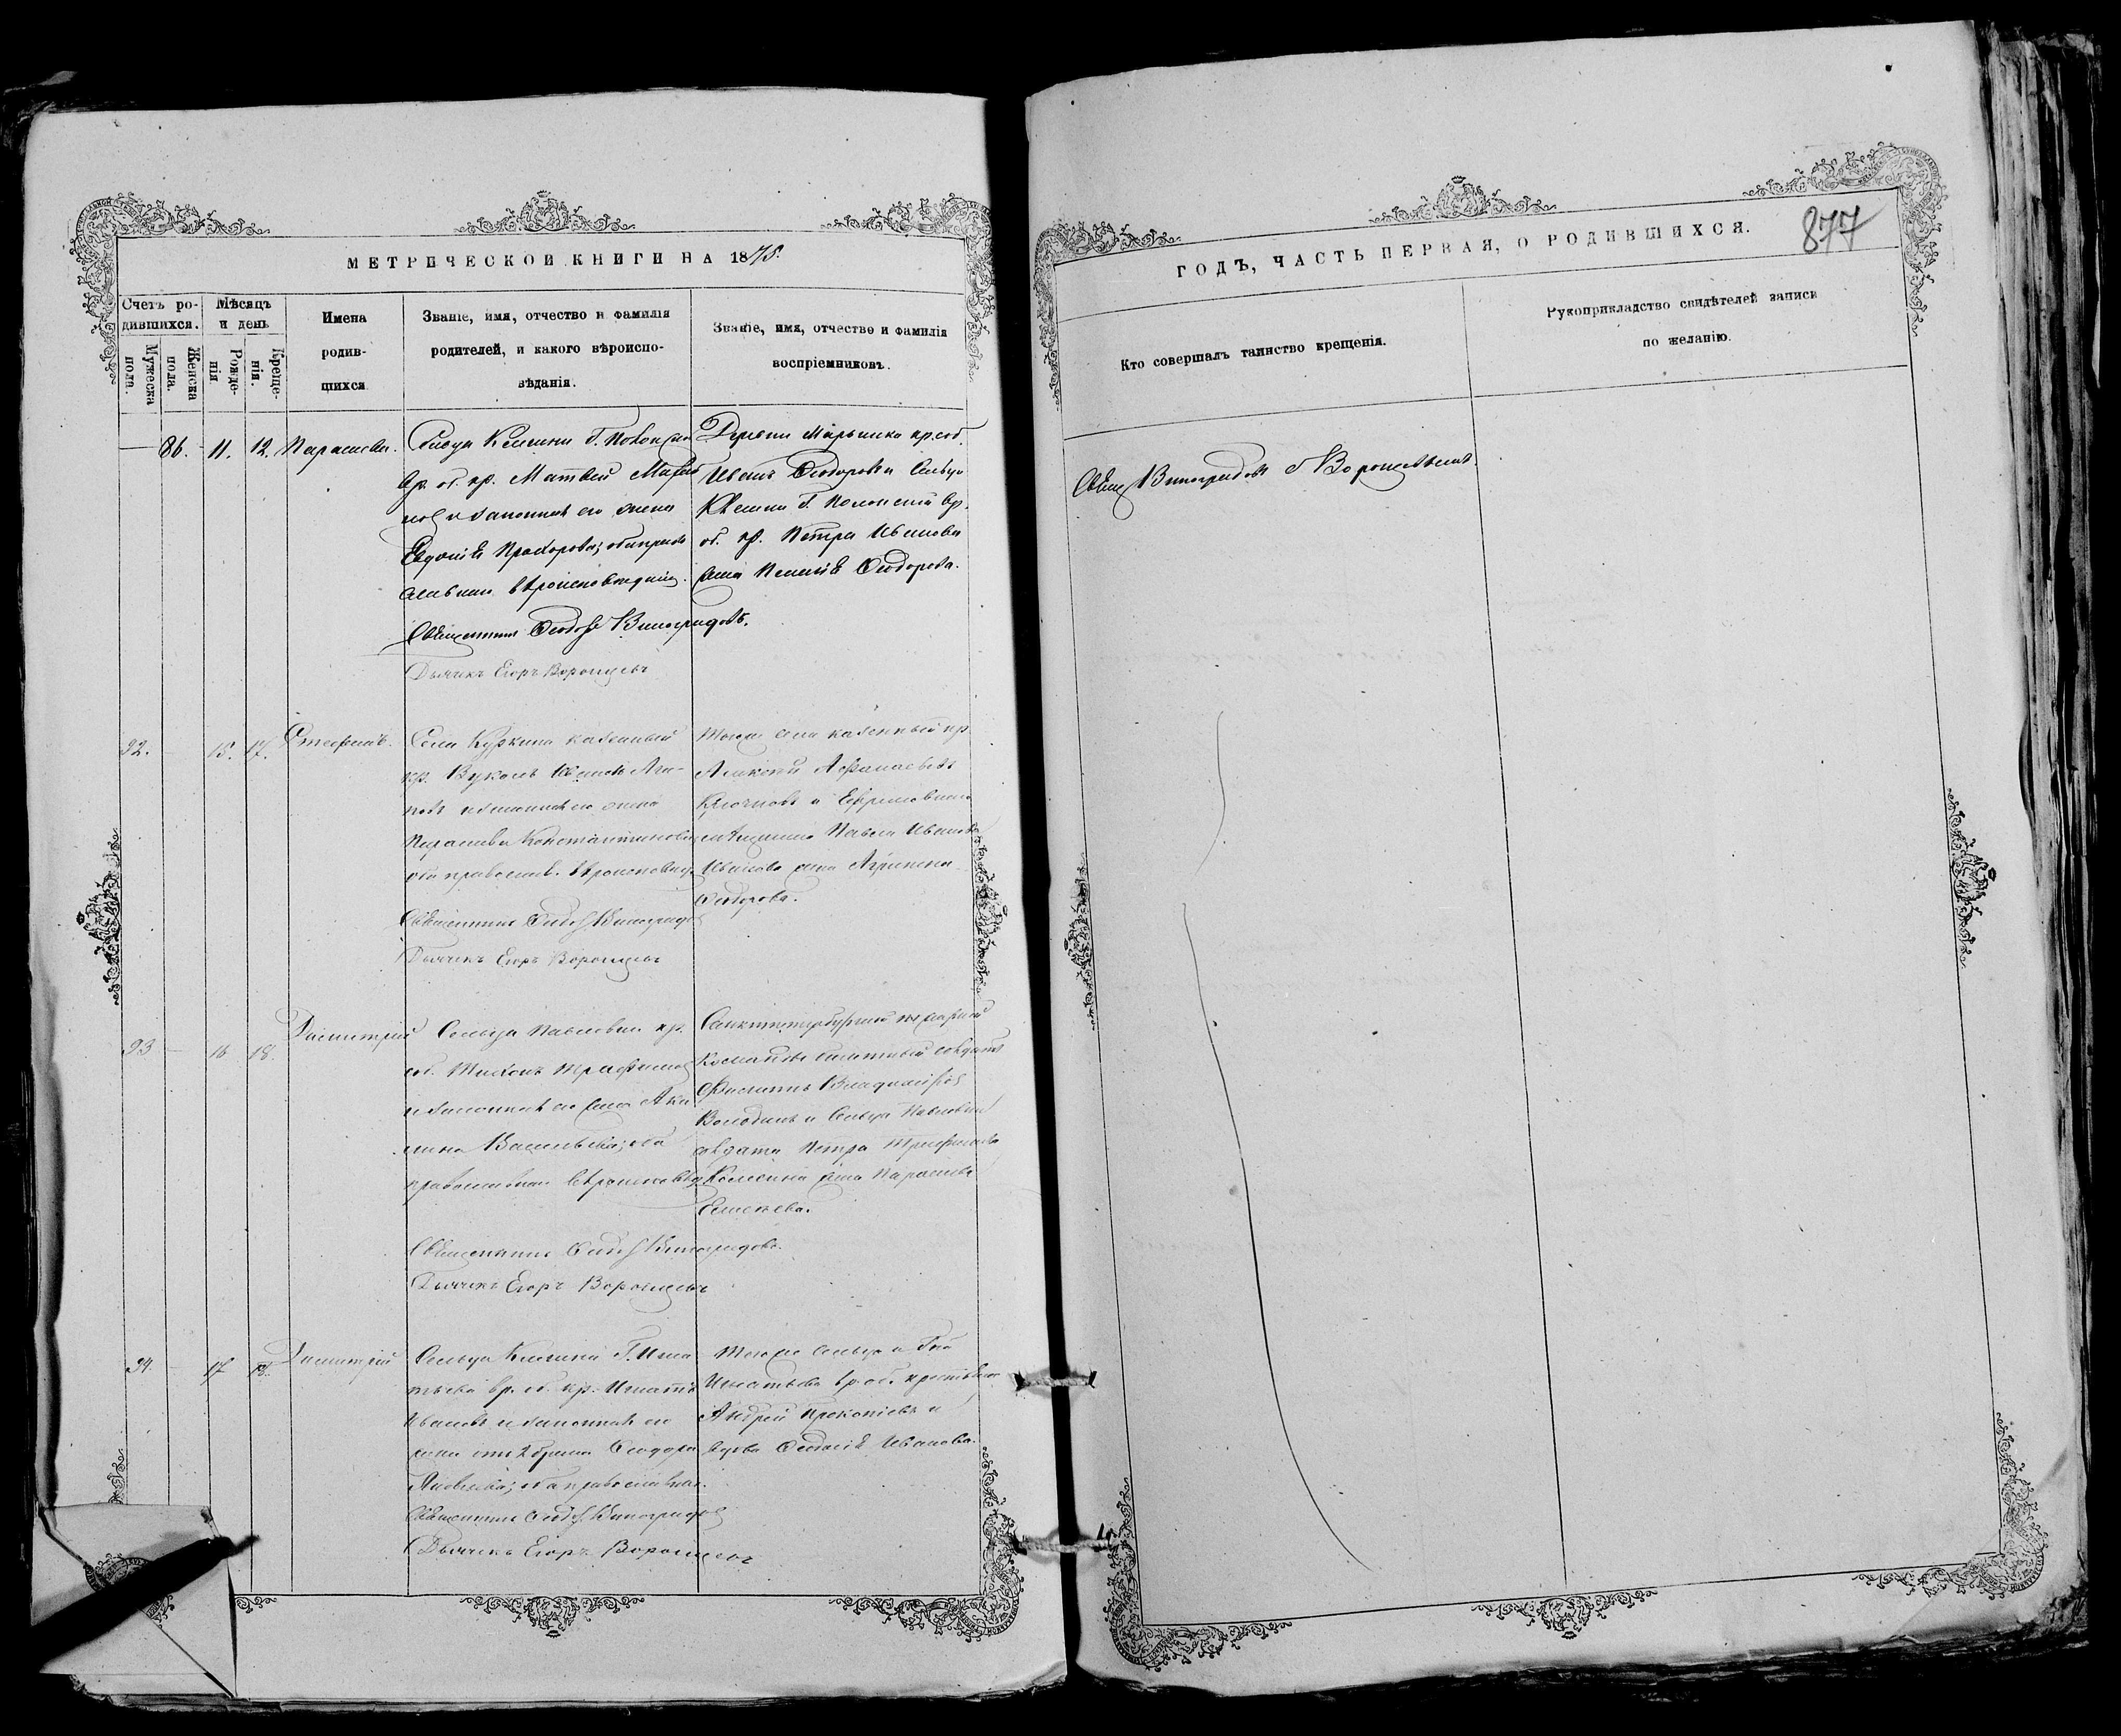 МЕТРИЧЕСКОЙ КНИГИ НА 1875.
Счетъ ро-
дившихся.
Мужеска
пола.
Женска
пола.
Мѣсяцъ
и день
Рожде-
нія
Креще-
нія.
Имена
родив-
шихся
Званіе, имя, отчество и фамилія
родителей, и какого вѣроиспо-
вѣданія.
Званіе, имя, отчество и фамилія
воспріемниковъ.
— 86. 11. 12. Параскева.
Сельца Кляпина Г.
вр. об. кр. Матвей
и законная его жена
Евдокія Прохорова; оба право
славнаго вѣроисповеданія.
Священникъ Ѳеодоръ Виноградовъ.
Дьячекъ Егоръ Воронцевъ
Деревни Марьинка кр. соб.
Иванъ Ѳеодоровъ и Сельца
Г. вр.
об. кр. Петра Иванова
жена Пелагія Ѳеодорова.
92. 15. 17. Стефанъ.
Села Куркина казенный
кр. Вуколъ Ага-
повъ и законная его жена
Параскева Константинова
оба православ. вѣроисповед.
Священникъ Ѳеодоръ Виноградовъ
Дьячекъ Егоръ Воронцевъ
Тогоже села казенный кр.
Алексей Афанасьевъ
и Ефремовскаго
мѣщанина Павла Иванова
Иванова жена Агрипена
Ѳеодорова.
93 — 16 18. Димитрій
Сельца Павловки кр.
соб. Тихонъ Трофимовъ
и законная его жена Аки
лина Васильева; оба
православнаго вѣроисповед.
Священникъ Ѳеодоръ Виноградовъ.
Дьячекъ Егоръ Воронцевъ
Санктпетербургской пожарной
Команды билетный солдатъ
Филиппъ Владиміровъ
Володинъ и Сельца Павловки
солдата Петра Трофимова
жена Параскева
94. 17 18. Димитрій
Сельца Кляпина Г. Игна
тьева вр. об. кр. Игнатій
Ивановъ и законная его
жена отъ 2 брака Ѳеодора
Яковлева; оба православнаг.
Священникъ Ѳеодоръ Виноградовъ
Дьячекъ Егоръ Воронцевъ
Тогоже Сельца и Г-на
Игнатьева вр. об. крестьянин
Андрей Прокопіевъ и
вдова Ѳеодосія Иванова.
ГОДЪ, ЧАСТЬ ПЕРВАЯ, О РОДИВШИХСЯ.
877
Кто совершалъ таинство крещенія.
Рукоприкладство свидѣтелей записи
по желанію.
Свящ Виноградовъ с Воронцевымъ.